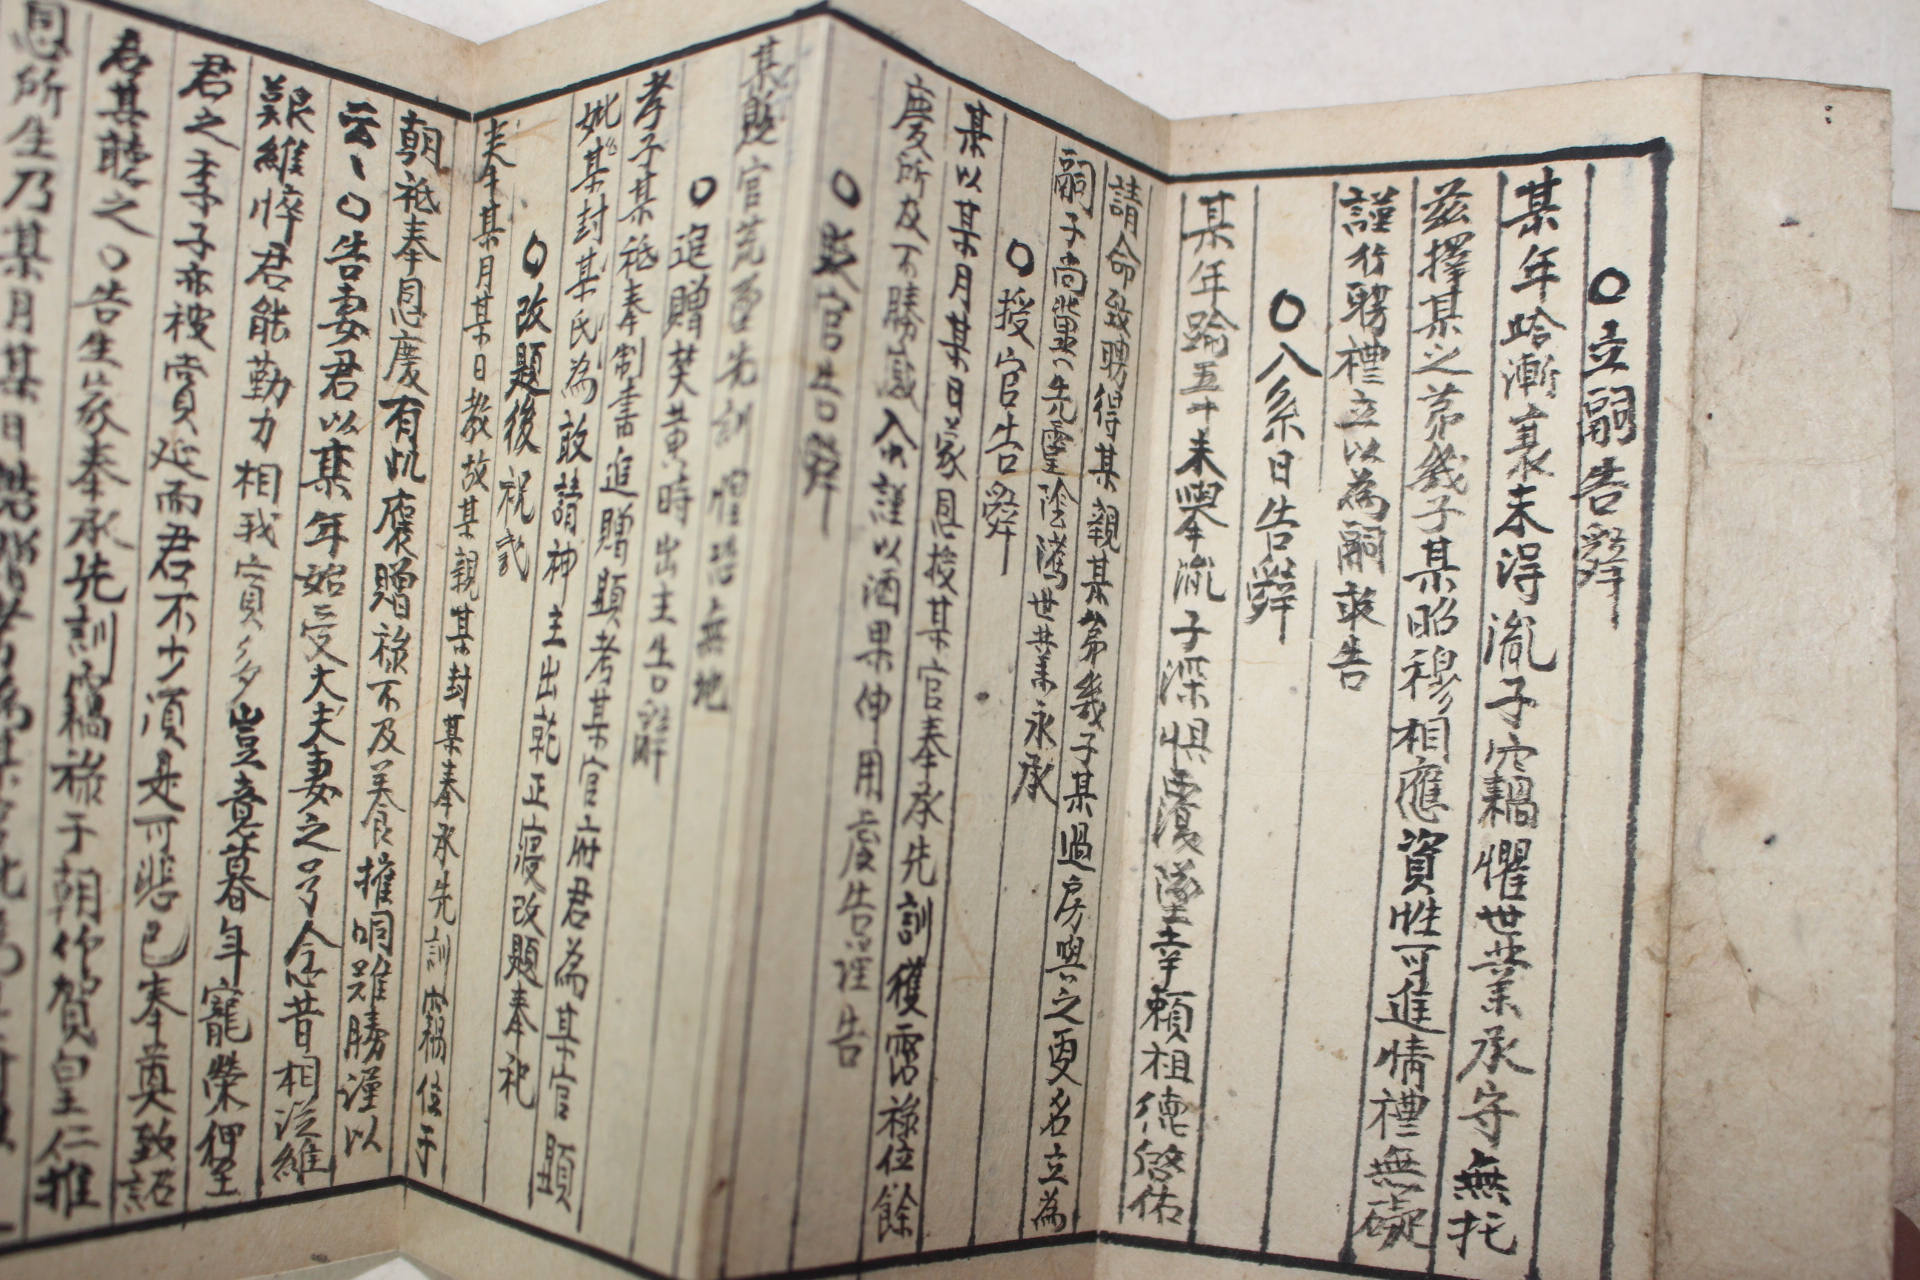 ○立嗣告辭
某年哈漸衰未得胤子窃惧世業承守無托
茲擇某之苐幾子某昭穆相應資性可進情禮無礙
謹行聘禮立以為嗣敢告
○入系日告辭
某年踰五十未擧胤子深惧覆墜幸頼祖德啓佑
請命致聘得某親某苐幾子某過房與之更名立為
嗣子尚冀先靈陰隲世世永承
○授官告辭
某以某月某日蒙恩授某官奉承先訓獲霑祿位餘
慶所及不勝感入謹以酒果伸用虔告謹告
○貶官告辭
某貶官荒墜先訓惶恐無地
○追贈焚黄時出主告辭
孝子某祗奉制書追贈顯考某官府君為某官顯
妣某封某氏為敢請神主出就正寢改題奉祀
○改題後祝式
某月某日教故某親某封某奉承先訓窃位于
朝祗奉恩慶有此褒贈祿不及養摧咽難勝謹以
云云○告妻君以某年始受大夫妻之号念昔相從維
艱維悴君能勤力相我實多豈意暮年寵榮俾至
君之季子亦被賞延而君不少須是可悲已奉奠致詔
君其聽之○告生家奉承先訓窃祿于朝作賀皇仁推
恩所生乃某月某日